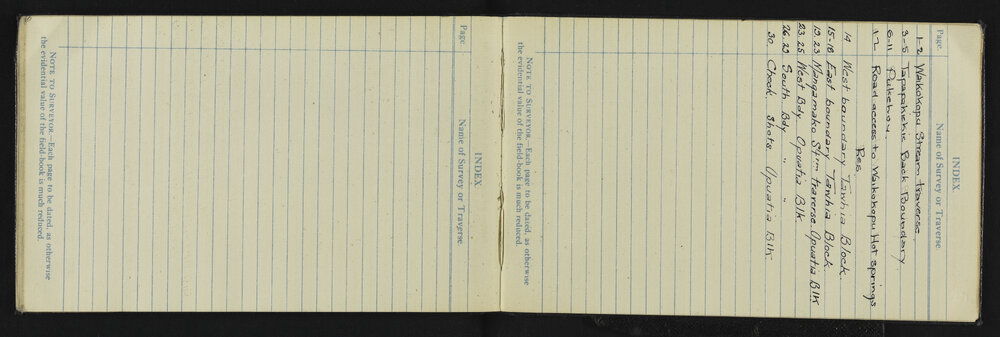 INDEX.
Page. Name of Survey or Traverse.
1-2 Waikokopu Stream traverse.
3-5 Tapapakekie Back Boundary.
6-11 Pukehou.
12 Road access to Waikokopu Hot springs
Res.
14 West boundary Tawhia Block.
15-18 East boundary Tawhia Block.
19.23 Mangamako Stm traverse. Opuatia Blk
23.25 West Bdy Opuatia Blk.
26.29 South Bdy " "
30. Check shots Opuatia Blk.
NOTE TO SURVEYOR.—Each page to be dated, as otherwise
the evidential value of the field-book is much reduced.
INDEX.
Page. Name of Survey or Traverse.
NOTE TO SURVEYOR.—Each page to be dated, as otherwise
the evidential value of the field-book is much reduced.